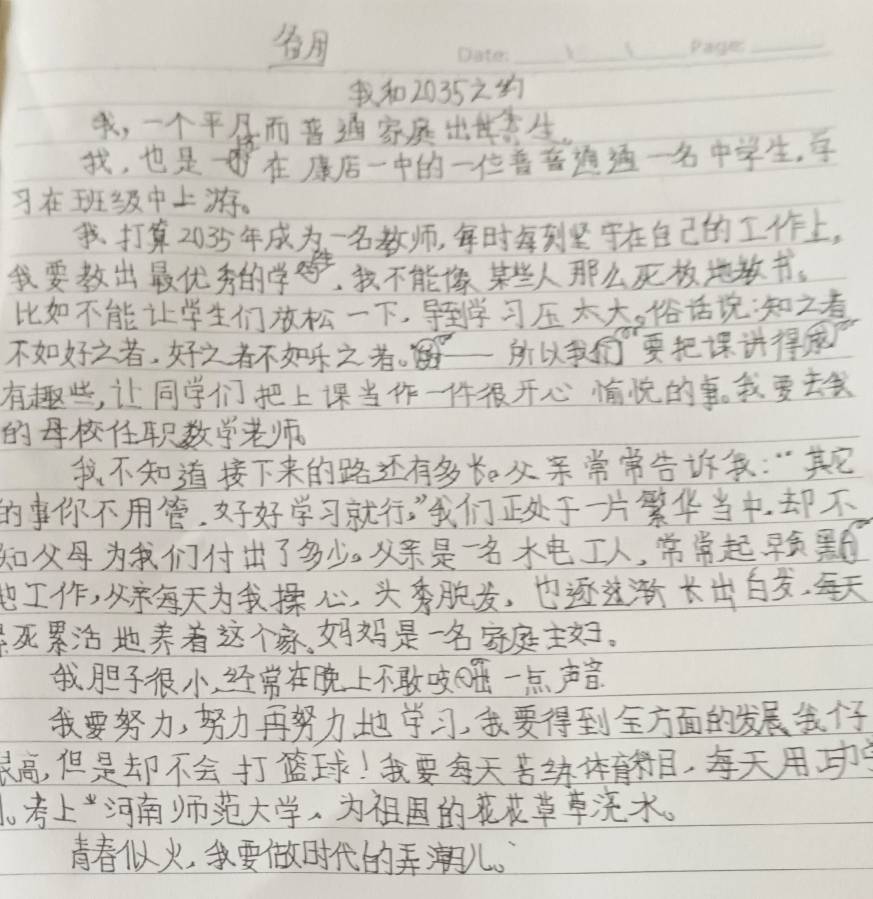 备用
Date: Page:
我和2035之约
我,一个平凡而普通家庭出世学生。
我,也是一名在康店一中的一位普普通通一名中学生,学
习在班级中上游。
我、打算2035年成为一名教师,每时每刻坚守在自己的工作上,
我要教出最优秀的学生,我不能像某些人那么死板地教书。
比如不能让学生们放松一下,导到学习压太大。俗话说:知之者
不如好之者,好之者不如乐之者。—— 所以我们要把课讲得
有趣些,让同学们把上课当作一件很开心愉悦的事。我要去我
的母校任职教学老师。
我不知道接下来的路还有多长。父亲常常告诉我:“其它
的事你不用管,好好学习就行。”我们正处于一片繁华当中,却不
知父母为我们付出了多少。父亲是一名水电工人,常常起早贪黑
地工作,父亲每天为我操心,头秀脱发,也逐渐长出白发,每天
累死累活地养着这个家。妈妈是一名家庭主妇。
我胆子很小,经常在晚上不敢吱一点声音
我要努力,努力再努力地学习,我要得到全方面的发展,我个子
很高,但是却不会打篮球!我要每天苦练体育项目,每天用功学
习。考上“河南师范大学,为祖国的花花草草浇水。
青春似火,我要做时代的弄潮儿。